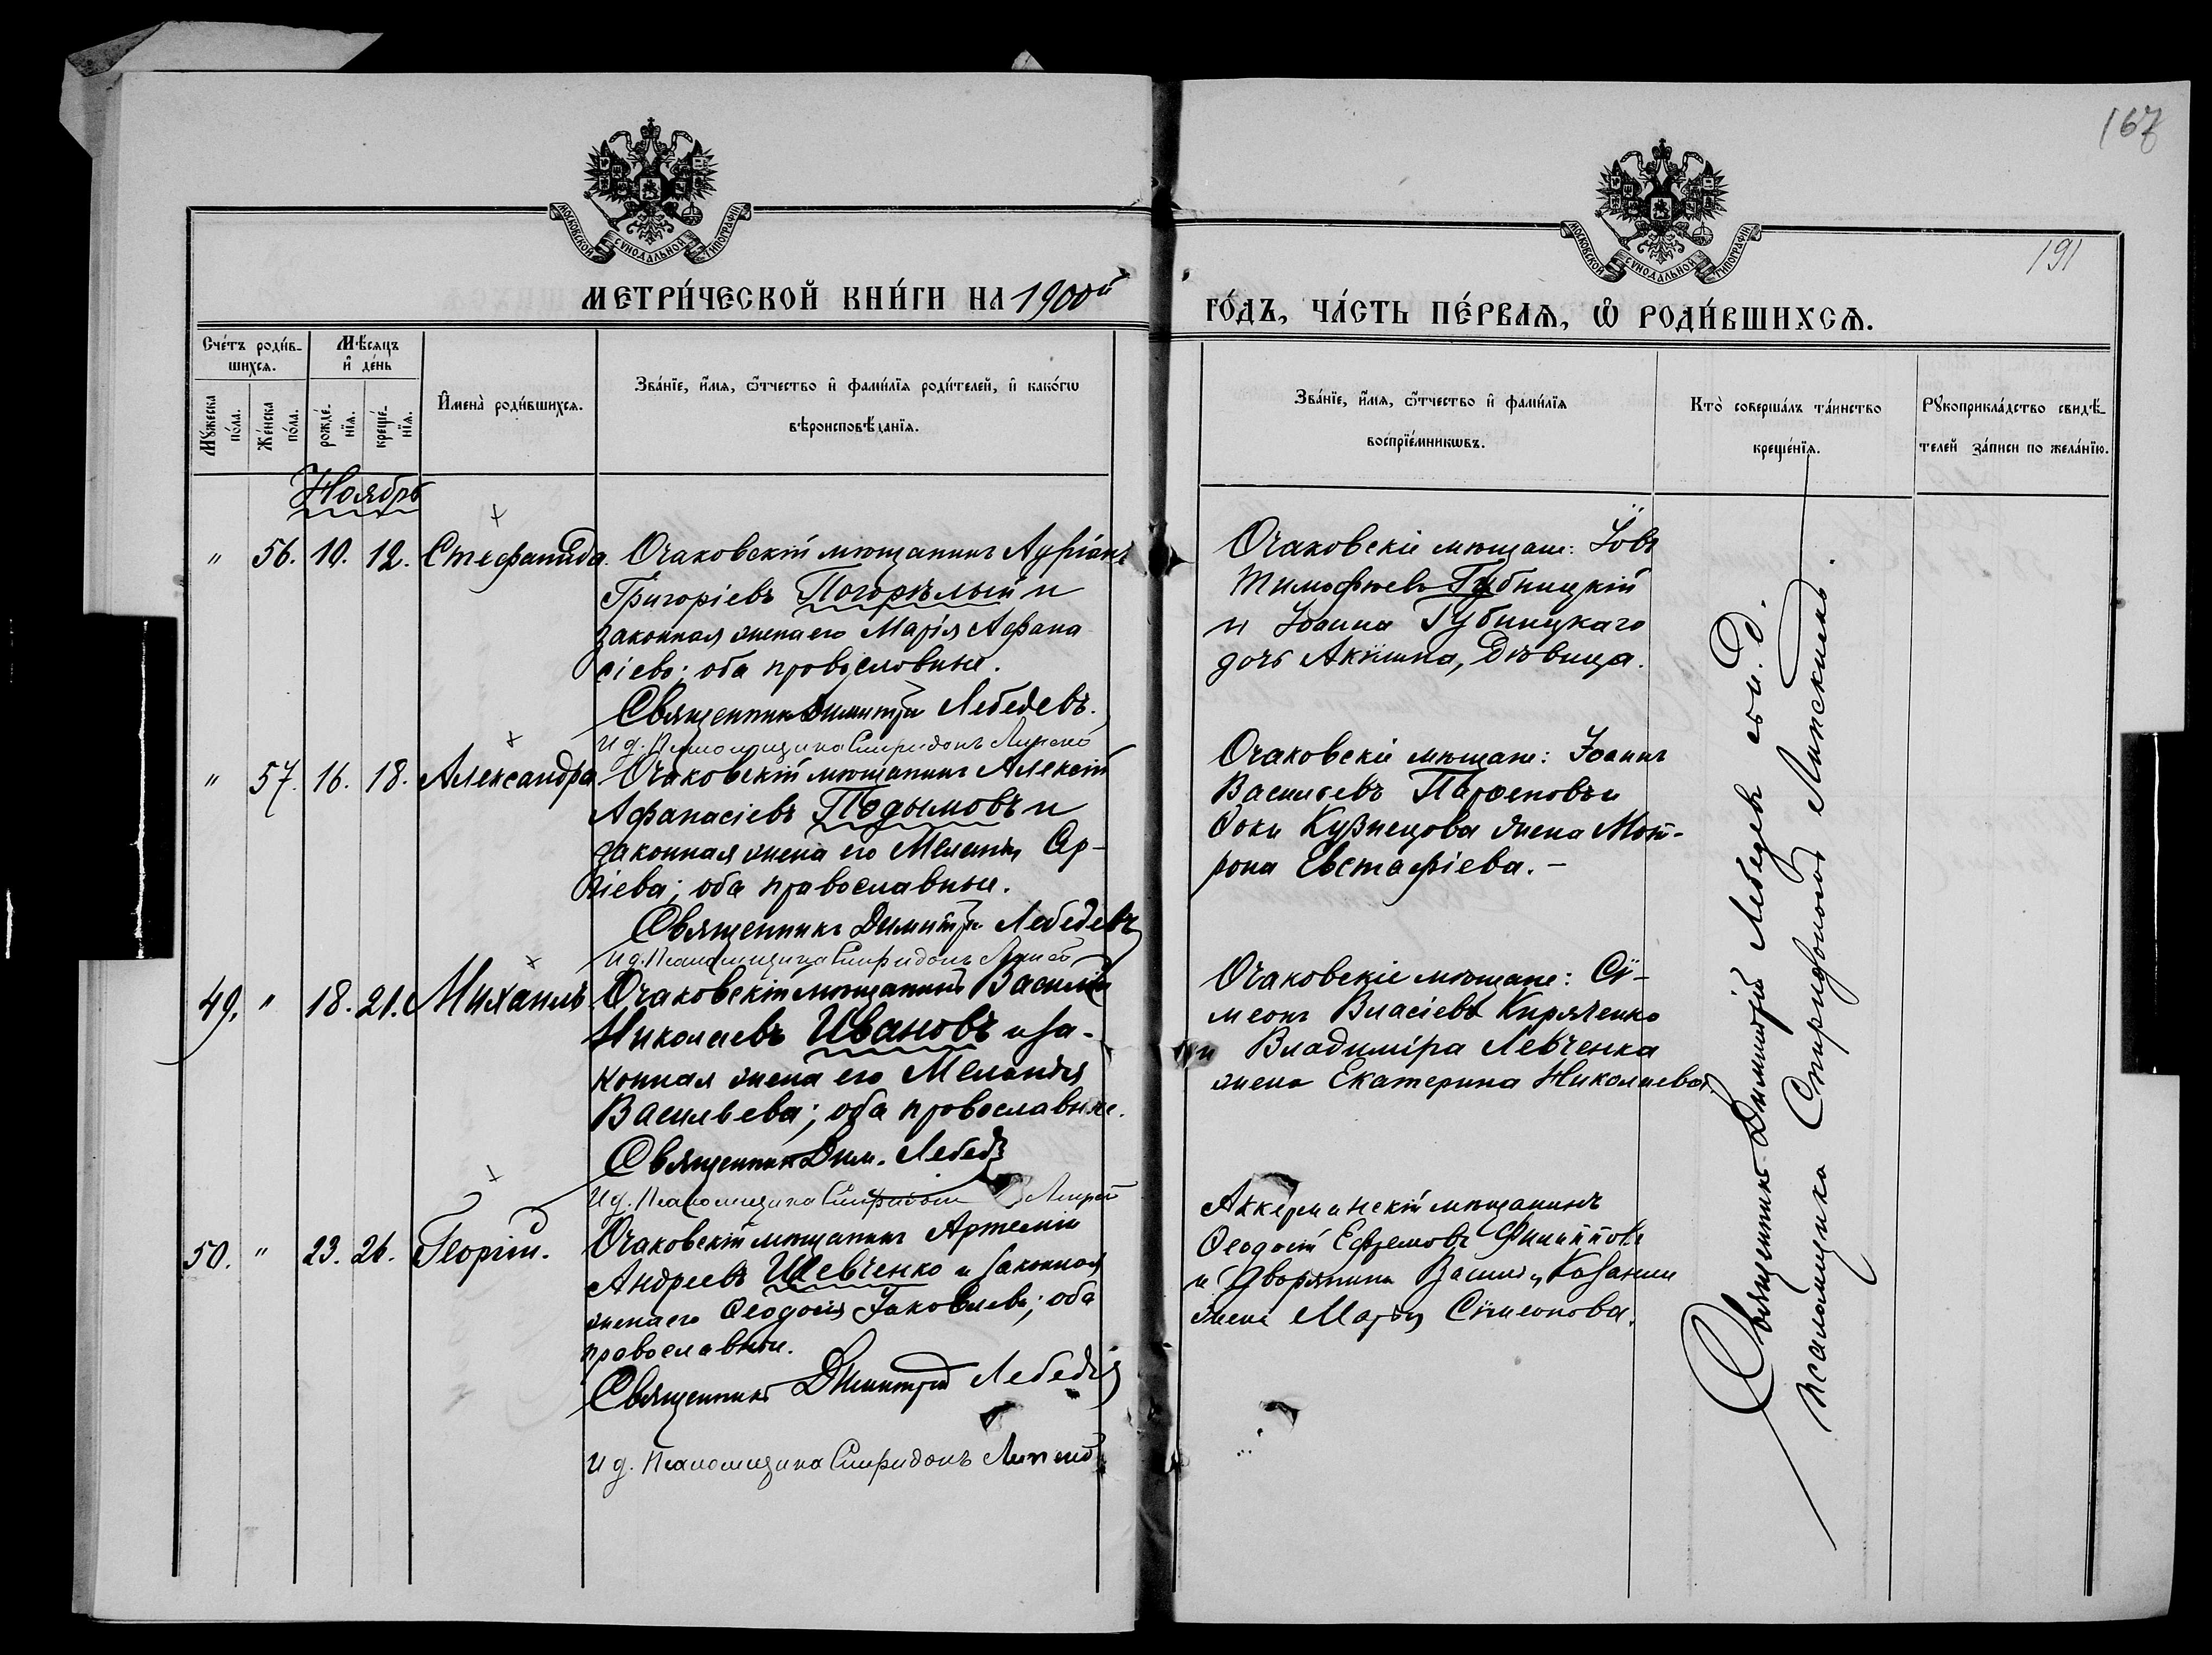 167
191
МОСКОВСКОЙ СѴНОДАЛЬНОЙ ТИПОГРАФІИ
МОСКОВСКОЙ СѴНОДАЛЬНОЙ ТИПОГРАФІИ
МЕТРИ́ЧЕСКОЙ КНИ́ГИ НА 1900й
ГО́ДЪ, ЧА́СТЬ ПЕ́РВАѦ, Ѽ РОДИ́ВШИХСѦ.
Сче́тъ роди́в-
шихсѧ.
Мѣ́сѧцъ
и҆ де́нь
Мꙋ́жеска
по́ла.
Же́нска
по́ла.
рожде́-
нїѧ.
креще́-
нїѧ.
И҆мена̀ роди́вшихсѧ.
Зва́нїе, и҆́мѧ, ѻ҆́тчество и҆ фами́лїѧ роди́телей, и҆ како́гѡ
вѣроисповѣ́данїѧ.
Зва́нїе, и҆́мѧ, ѻ҆́тчество и҆ фами́лїѧ
воспрїе́мникѡвъ.
Кто̀ соверша́лъ та́инство
креще́нїѧ.
Рꙋкоприкла́дство свидѣ́-
телей за́писи по жела́нїю.
Ноябрь
" 56. 10. 12. Стефанида. Очаковскій мѣщанинъ Адріанъ
Григоріевъ Погорѣлый и
законная жена его Марія Афана
сіева; оба православные.
Священникъ Димитрій Лебедевъ.
И д. Псаломщика Спиридонъ Липскій
Очаковскіе мѣщане: Іовъ
Тимофѣевъ Губницкій
и Іоанна Губницкаго
дочь Акилина, дѣвица.
" 57. 16. 18. Александра. Очаковскій мѣщанинъ Алексій
Афанасіевъ Подымовъ и
законная жена его Меланія Ар-
тіева; оба православные.
Священникъ Димитрій Лебедевъ
И д. Псаломщика Спиридонъ Липскій
Очаковскіе мѣщане: Іоаннъ
Васильевъ Парѳеновъ и
Ѳоки Кузнецова жена Мот-
рона Евстафіева. —
49. " 18. 21. Михаилъ. Очаковскій мѣщанинъ Василій
Николаевъ Ивановъ и за-
конная жена его Меланія
Васильева; оба православные.
Священникъ Дим. Лебедевъ
И д. Псаломщика Спиридонъ Липскій
Очаковскіе мѣщане: Сѵ-
меонъ Власіевъ Киряченко
и Владиміра Левченка
жена Екатерина Николаева
50. " 23. 26. Георгій. Очаковскій мѣщанинъ Артемій
Андреевъ Шевченко и законная
жена его Ѳеодосія Іаковлева; оба
православные.
Священникъ Димитрій Лебедевъ
И д. Псаломщика Спиридонъ Липскій
Аккерманскій мѣщанинъ
Ѳеодосій Ефремовъ Филипповъ
и дворянина Василія
жена Марія Сѵмеонова.
Священникъ Димитрій Лебедевъ съ и. д.
псаломщика Спиридономъ Липскимъ.